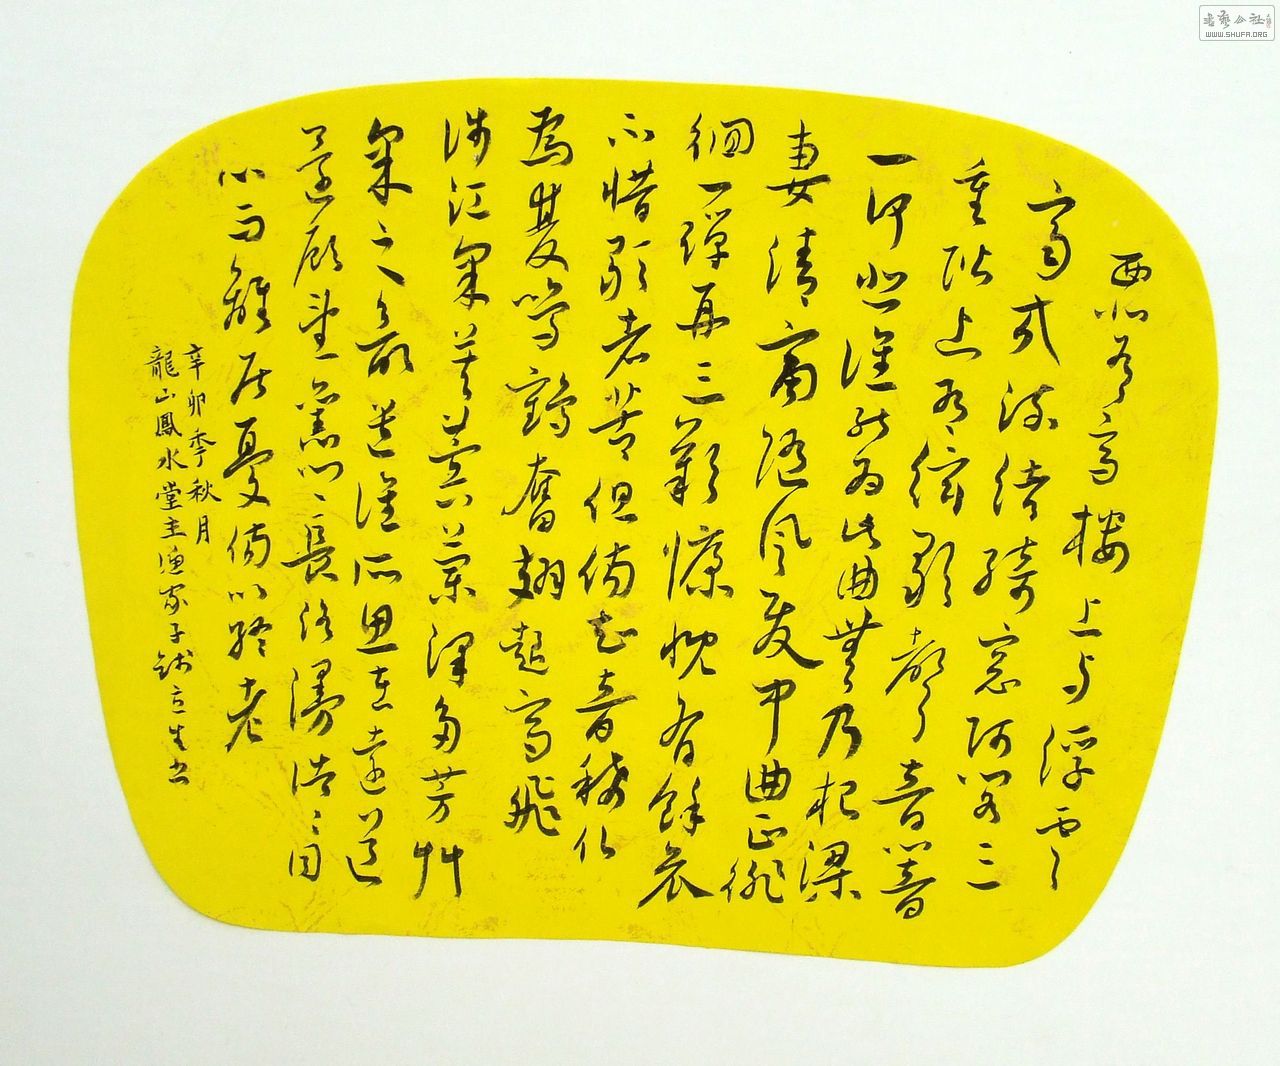 西北有高樓上與浮雲
齊交疏結綺窗阿閣三
重階上有絃歌聲音響
一何悲誰能為此曲無乃杞梁
妻清商隨風發中曲正徘
徊一彈再三歎慷慨有餘哀
不惜歌者苦但傷知音稀化
為雙鳴鶴奮翅起高飛
涉江采芙蓉蘭澤多芳艸
采之欲遺誰所思在遠道
還顧望舊鄉長路漫浩浩同
心而離居憂傷以終老
辛卯季秋月
龍山鳳水堂主漁家子錢立生書
書藝公社
WWW.SHUFA.ORG